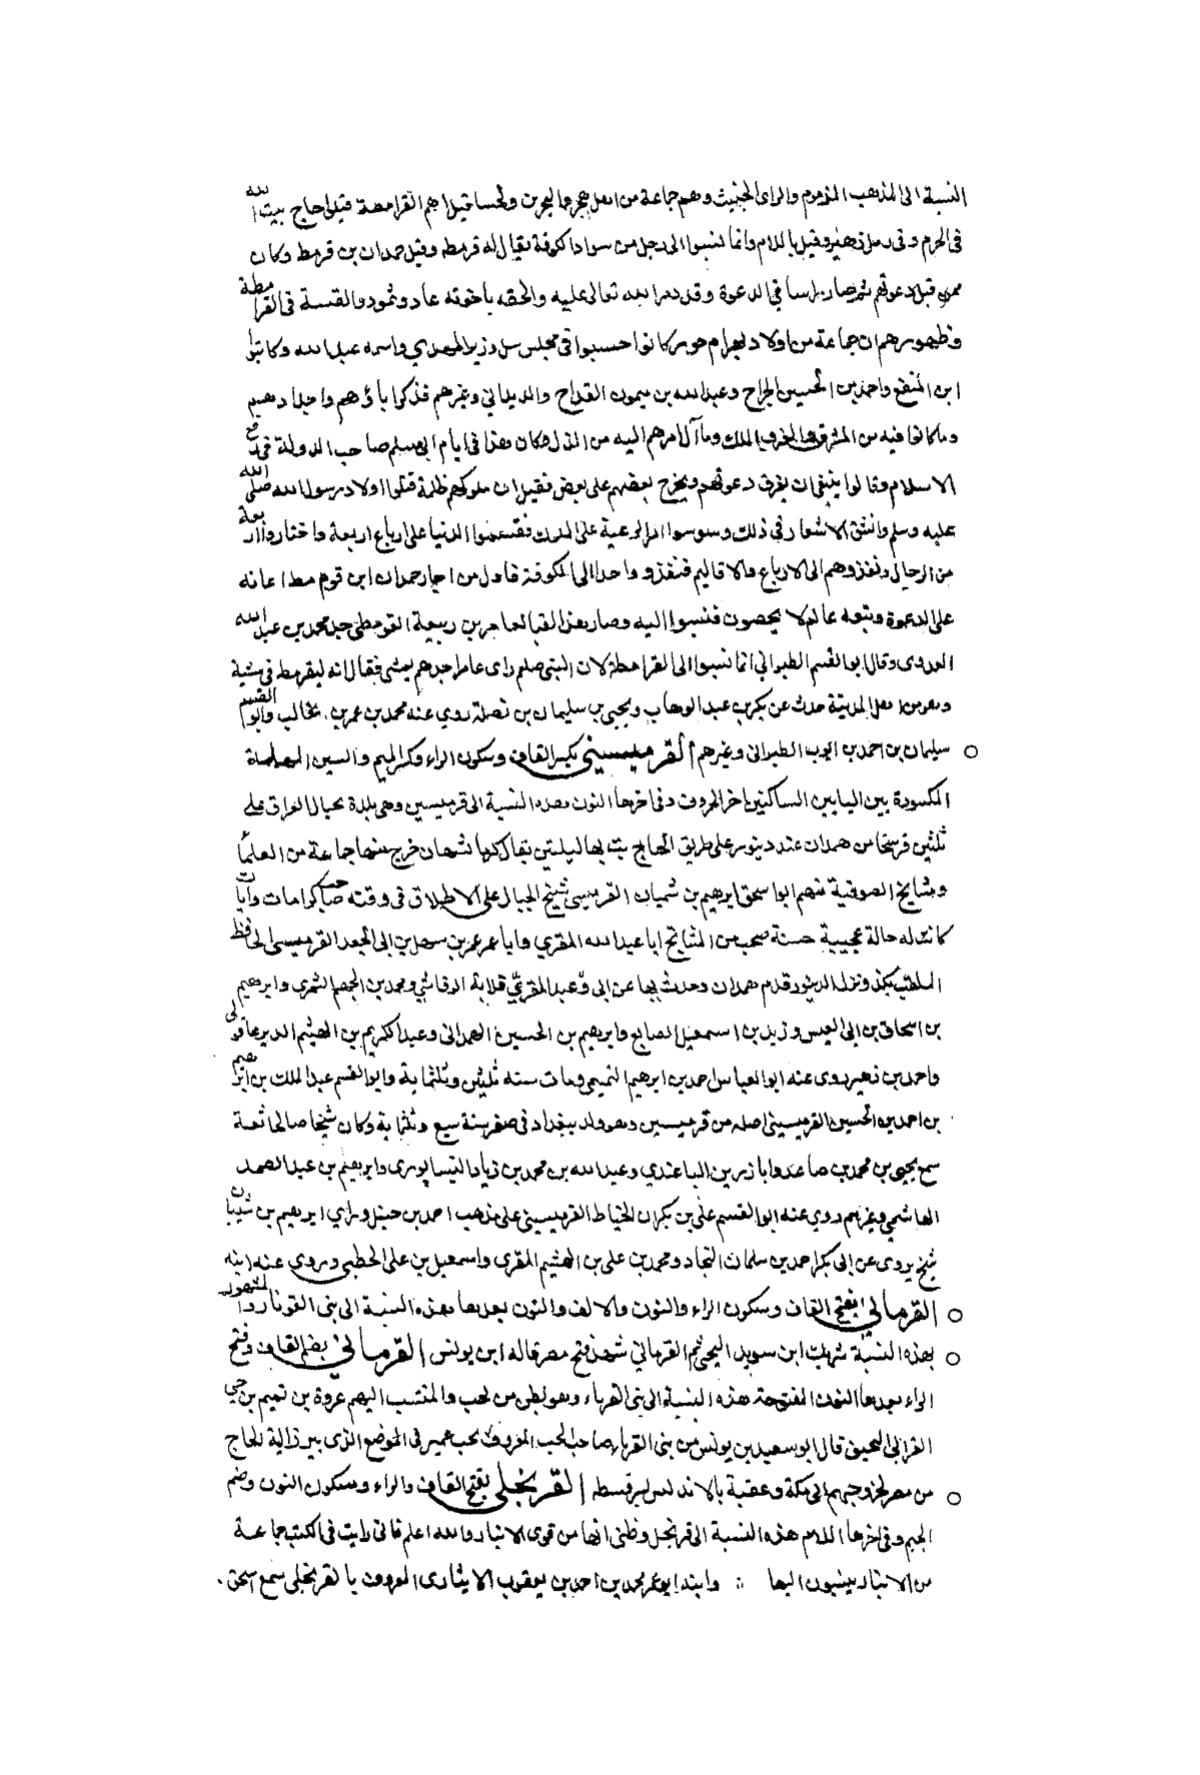 النسبة الى المذهب المذموم والراى الخبيث وهم جماعة من اهل هجر والبحرين ولحسا قيل هم القرامطة قتلوا حاج بيت الله
فى الحرم وانما نسبوا الى رجل من سواد الكوفة يقال له قرمط وقيل حمدان بن قرمط وكان
ممن قبل دعوتهم ثم صار راسا فى الدعوة وقد دمر الله تعالى عليه والحقه باخوته عاد وثمود والقصة فى القرامطة
وظهورهم ان جماعة من اولاد بهرام جوبر كانوا حبسوا فى مجلس واسمه عبد الله وكاتبوا
ابن المقفع واحمد بن الحسين الجراح وعبد الله بن ميمون القداح والديلمانى وغيرهم فذكروا باؤهم واجدادهم
وما كانوا فيه من الملك وما آل امرهم اليه من الذل وكان هذا فى ايام ابى مسلم صاحب الدولة
الاسلام وقالوا ينبغى ان يفرق دعوتهم ويخرج بعضهم على بعض فقيل ان ملوكهم ظلمة قتلوا اولاد رسول الله صلى الله
عليه وسلم وانشق الاشعار فى ذلك ووسوسوا الى الرعية على الملوك فقسموا الدنيا على ارباع اربعة واختاروا اربعة
من الرجال ونفذوهم الى الارباع والاقاليم فنفذو واحدا الى الكوفة فاول من اجابه حمدان ابن قرمط اعانه
على الدعوة وتبعه عالم لا يحصون فنسبوا اليه عامر بن ربيعة القرمطى جد محمد بن عبد الله
العدوى وقال ابو القسم الطبرانى انما نسبوا الى القرامطة لان النبى صلعم راى عامر جدهم يمشى فقال انه ليقرمط فى مشية
وهو من اهل المدينة حدث عن بكر بن عبد الوهاب ويحيى بن سليمان بن نضلة روى عنه محمد بن عمر بن غالب وابو القسم
سليمان بن احمد بن ايوب الطبرانى وغيرهم القرميسينى بكسر القاف وسكون الراء وكسر الميم والسين المهملة
المكسورة بين اليايين الساكنين اخر الحروف وفى اخرها النون هذه النسبة الى قرميسين وهى بلدة بجبال العراق على
ثلثين فرسخا من همدان عند دينور على طريق الحاج بت بها ليلتين يقال لها كرمانشهان خرج منها جماعة من العلما
ومشايخ الصوفية منهم ابو اسحق ابرهيم بن شيبان القرميسى شيخ الجبال على الاطلاق فى وقته صاحب كرامات وايات
كانت له حالة عجيبة حسنة صحب من المشايخ ابا عبد الله المغربي وابا عمر عمر بن سهل بن ابى الجعد القرميسى الحافظ
الملقب بكدو نزل الدينور قدم همدان وحدث بها عن ابى قلابة الرقاشي ومحمد بن الجهم السمرى وابرهيم
بن اسحاق بن ابى العيس وزيد بن اسمعيل الصايغ وابرهيم بن الحسين الهمدانى وعبد الكريم بن الهيثم الديرعاقولى
واحمد بن زهير روى عنه ابو العباس احمد بن ابرهيم التميمى ومات سنه ثلثين وثلثماية وابو القسم عبد الملك بن ابرهيم
بن احمد بن الحسين القرميسينى اصله من قرميسين وهو ولد ببغداد فى صفر سنة سبع وثلثماية وكان شيخا صالحا ثقة
سمع يحيى بن محمد بن صاعد وابا ذر بن الباغندي وعبد الله بن محمد بن زياد النيسابورى وابرهيم بن عبد الصمد
الهاشمي وغيرهم روى عنه ابو القسم على بن بكران الخياط القرميسينى على مذهب احمد بن حنبل وراي ابرهيم بن شيبان
شيخ يروى عن ابى بكر احمد بن سلمان النجاد ومحمد بن على بن الهيثم المقرى واسمعيل بن على الخطبى وروى عنه ابنه
القرمانى بفتح القاف وسكون الراء والنون والالف والنون بعدها هذه النسبة الى بنى القرنا والمشهور
بهذه النسبة شريك ابن سويد التجيبى ثم القرنانى شهد فتح مصر قاله ابن يونس القرمانى بضم القاف وفتح
الراء بعدها النون المفتوحة هذه النسبة الى بنى القرناء وهو بطن من تجيب والمنتسب اليهم عروة بن تميم بن
التجيبى قال ابو سعيد بن يونس من بنى القرنا صاحب الجب المعروف بجب عميرة فى الموضع الذى يبرز اليه الحاج
من مصر لخروجهم الى مكة وعقبة بالاندلس بسرقسطه القرنجلى بفتح القاف والراء وسكون النون وضم
الجيم وفى اخرها اللام هذه النسبة الى قرنجل وظنى انها من قرى الانبار والله اعلم فانى رايت فى الكتب جماعة
من الانبار ينسبون اليها وابنه ابو عمر محمد بن احمد بن يعقوب الانبارى المعروف بالقرنجلى سمع اسحق